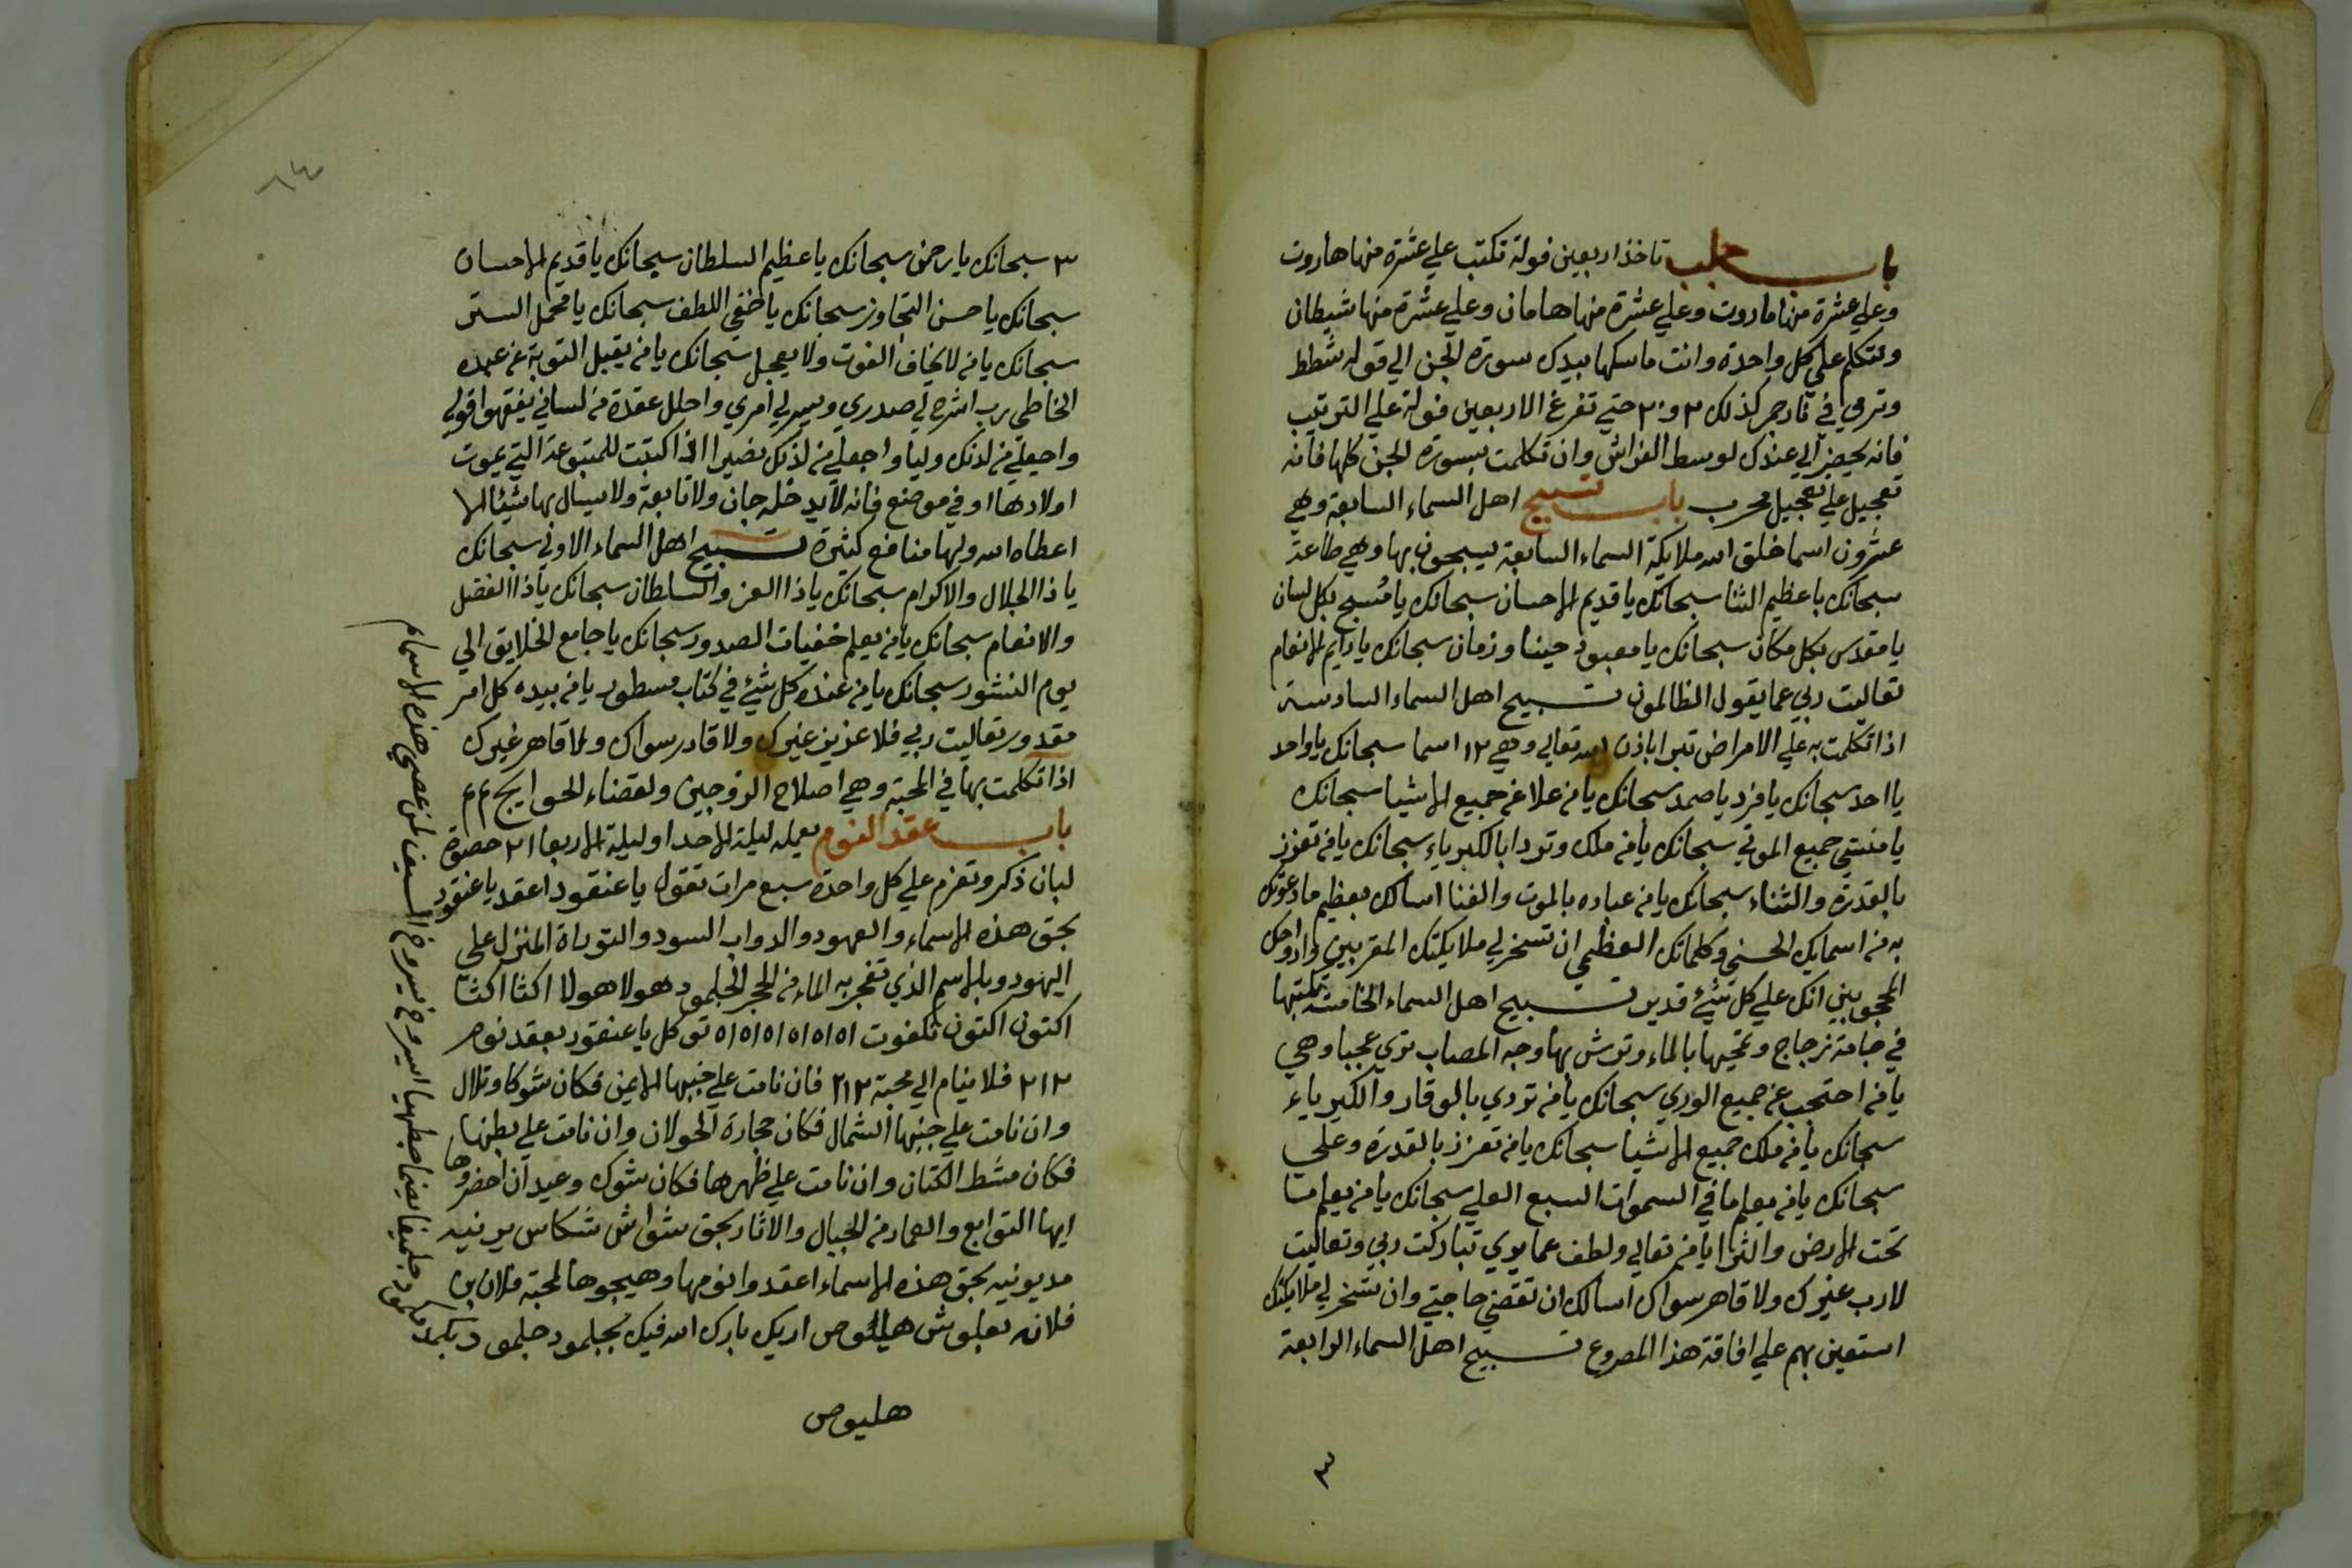 باب جلب تاخذ اربعين فولة تكتب علي عشرة منها هاروت
وعلي عشرة منها ماروت وعلي عشرة منها هامان وعلي عشرة منها شيطان
وتتكلم علي كل واحدة وانت ماسكها بيدك سورة الجن الي قوله شطط
وترمي في نار جمر كذلك ٢ و ٢٠ حتي تفرغ الاربعين فولة علي الترتيب
فانه يحيضر الي عندك لوسط الفراش وان تكلمت بسورة الجن كلها فانه
تعجيل علي تعجيل مجرب باب تسبيح اهل السماء السابعة وهي
عشرون اسما خلق الله ملايكة السماء السابعة يسبحون بها وهي طاعة
سبحانك يا عظيم الثنا سبحانك يا قديم الاحسان سبحانك يا مُسبح بكل لسان
يا مقدس بكل مكان سبحانك يا معبود حينا وزمان سبحانك يا دايم الانعام
تعاليت ربي عما يقول الظالمون تسبيح اهل السماء السادسة
اذا تكلمت به علي الامراض تبرا باذن الله تعالي وهي ١٢ اسما سبحانك يا واحد
يا احد سبحانك يا فرد يا صمد سبحانك يا من علا عن جميع الاشيا سبحانك
يا منشي جميع الموتي سبحانك يا من ملك وتردا بالكبرياء سبحانك يا من تعزز
بالقدرة والثناء سبحانك يا من عباده بالموت والفنا اسالك بعظيم ما دعوتك
به من اسمايك الحسني وكلماتك العظمي ان تسخر لي ملايكتك المقربين وارواحك
المحجوبين انك علي كل شيء قدير تسبيح اهل السماء الخامسة تكتبها
في جامة زجاج وتمحيها بالماء وترش بها وجه المصاب تري عجبا وهي
يا من احتجب عن جميع الوري سبحانك يا من تردي بالوقار والكبرياء
سبحانك يا من ملك جميع الاشيا سبحانك يا من تعزز بالقدرة وعلي
سبحانك يا من يعلم ما في السموات السبع العلي سبحانك يا من يعلم ما
تحت الارض والثرا يا من تعالي ولطف عما يري تباركت ربي وتعاليت
لا رب غيرك ولا قاهر سواك اسالك ان تقضي حاجتي وان تسخر لي ملايكتك
استعين بهم علي افاقة هذا المصروع تسبيح اهل السماء الرابعة
٣
٦٤
٣ سبحانك يا رحمن سبحانك يا عظيم السلطان سبحانك يا قديم الاحسان
سبحانك يا حسن التجاوز سبحانك يا خفي اللطف سبحانك يا مجمل الستر
سبحانك يا من لا يخاف الفوت ولا يعجل سبحانك يا من يقبل التوبة عن عبده
الخاطي رب اشرح لي صدري ويسر لي امري واحلل عقدة من لساني يفقهوا قولي
واجعلي من لدنك وليا واجعلي من لدنك نصيرا اذا كتبت للمتبوعة التي يموت
اولادها او في موضع فانه لا يدخله جان ولا تابعة ولا يسال بها شيئا الا
اعطاه الله ولها منافع كثيرة تسبيح اهل السماء الاولي سبحانك
يا ذا الجلال والاكرام سبحانك يا ذا العز والسلطان سبحانك يا ذا الفضل
والانعام سبحانك يا من يعلم خفيات الصدور سبحانك يا جامع الخلايق الي
يوم النشور سبحانك يا من عنده كل شيء في كتاب مسطور يا من بيده كل امر
مقدور تعاليت ربي فلا عزيز غيرك ولا قادر سواك ولا قاهر غيرك
اذا تكلمت بها في المحبة وهي اصلاح الزوجين ولقضاء الحوايج م م
باب عقد النوم يعمله ليلة الاحد او ليلة الاربعا ٢١ حصوة
لبان ذكر وتعزم علي كل واحدة سبع مرات تقول يا عنقود اعقد يا عنقود
بحق هذه الاسماء والعهود والدواب السود والتوراة المنزل علي
اليهود وبالاسم الذي تفجر به الماء من الحجر الجلمود هولا هولا اكثا اكثا
اكتون اكتون تكفوت ٥١ ٥١ ٥١ ٥١ ٥١ ٥١ توكل يا عنقود بعقد نوم
٢١٢ فلا ينام الي محبة ٢١٢ فان نامت علي جنبها الايمن فكان شوكا وتلال
وان نامت علي جنبها الشمال فكان حجارة الحولان وان نامت علي بطنها
فكان مشط الكتان وان نامت علي ظهرها فكان شوك وعيدان احضروها
ايها التوابع والعمار من الجبال والاثار بحق شواش شكاس يرنيه
مديونيه بحق هذه الاسماء اعقدوا نومها وهيجوها لمحبة فلان بن
فلانه بعلوش هليوص اريك بارك الله فيك بجلمود جلمود
هليوص
السيف لمن عصي هذه الاسماء